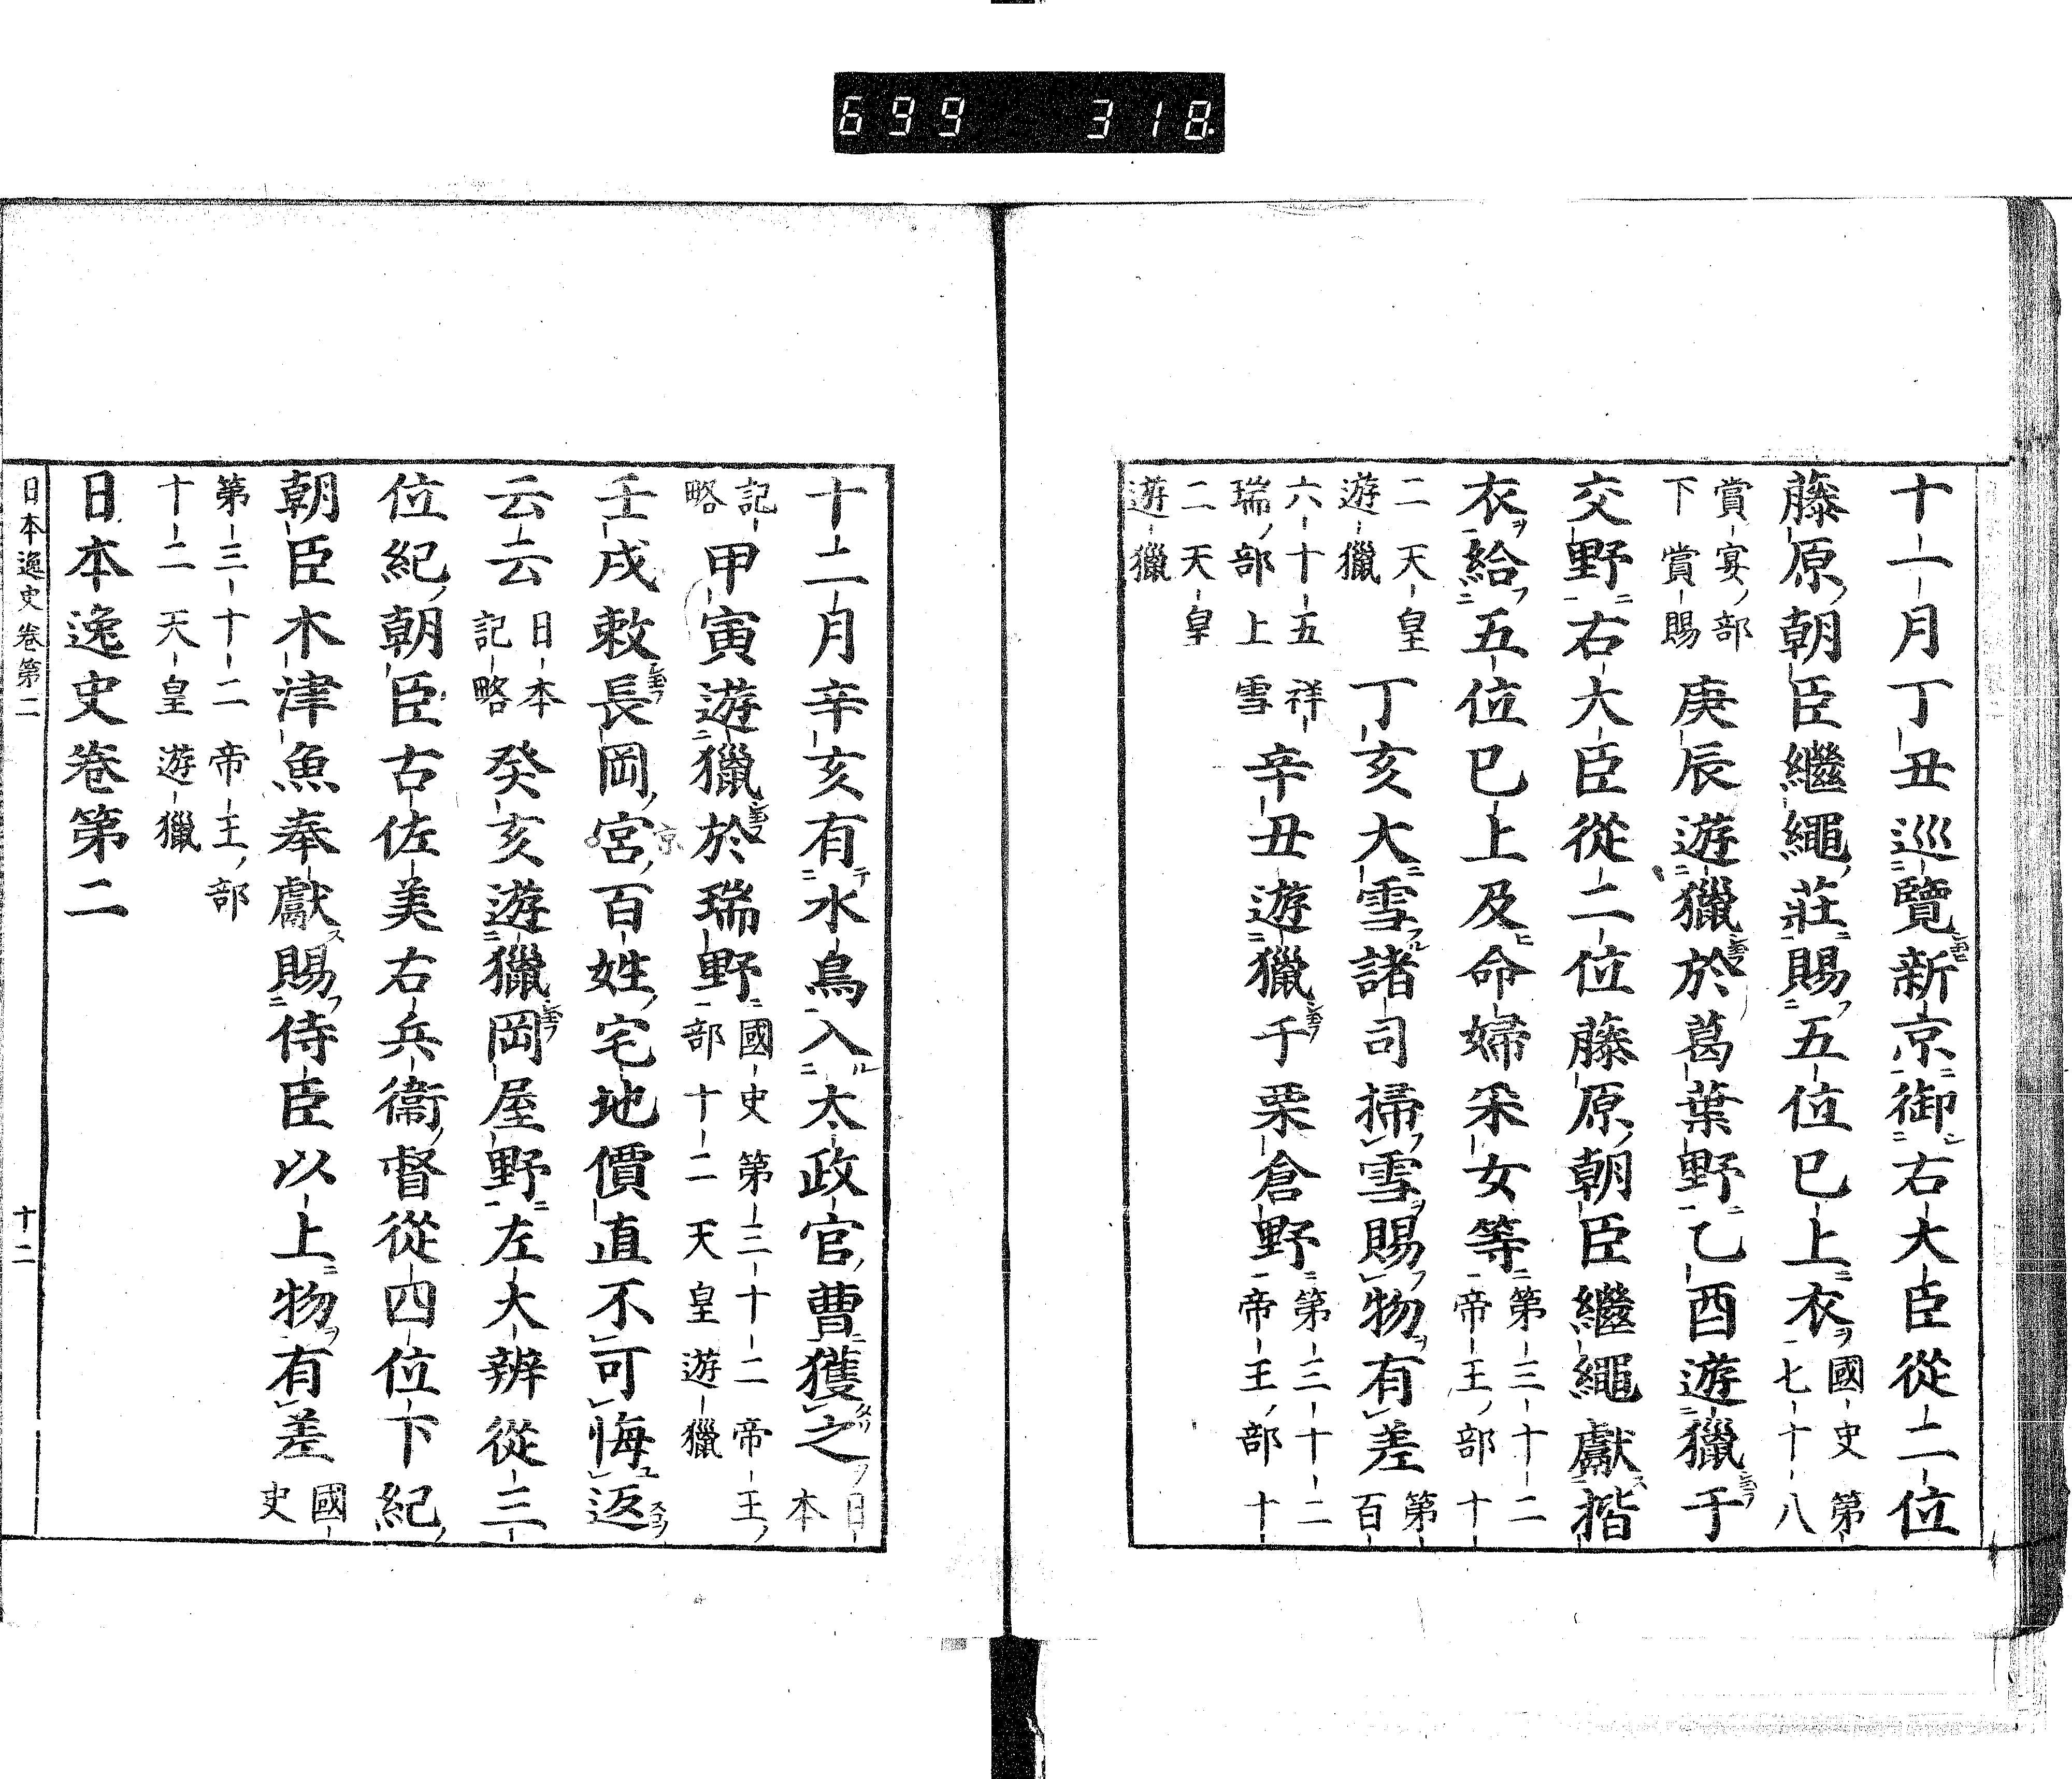 699 318
十一月丁丑巡覽新京御右大臣從二位
藤原朝臣繼繩莊賜五位已上衣國史第七十八
賞宴部下賞賜庚辰遊獵於葛葉野乙酉遊獵于
交野右大臣從二位藤原朝臣繼繩獻揩
衣給五位已上及命婦采女等第三十二帝王部十
二天皇遊獵丁亥大雪諸司掃雪賜物有差第百
六十五祥瑞部上雪辛丑遊獵于栗倉野第三十二帝王部十
二天皇遊獵
十二月辛亥有水鳥入太政官曹獲之日本
記略甲寅遊獵於瑞野國史第三十二帝王部十二天皇遊獵
壬戌敕長岡宮百姓宅地價直不可悔返
京
云云日本記略癸亥遊獵岡屋野左大辨從三
位紀朝臣古佐美右兵衞督從四位下紀
朝臣木津魚奉獻賜侍臣以上物有差國史
第三十二帝王部十二天皇遊獵
日本逸史卷第二
日本逸史卷第二 十二